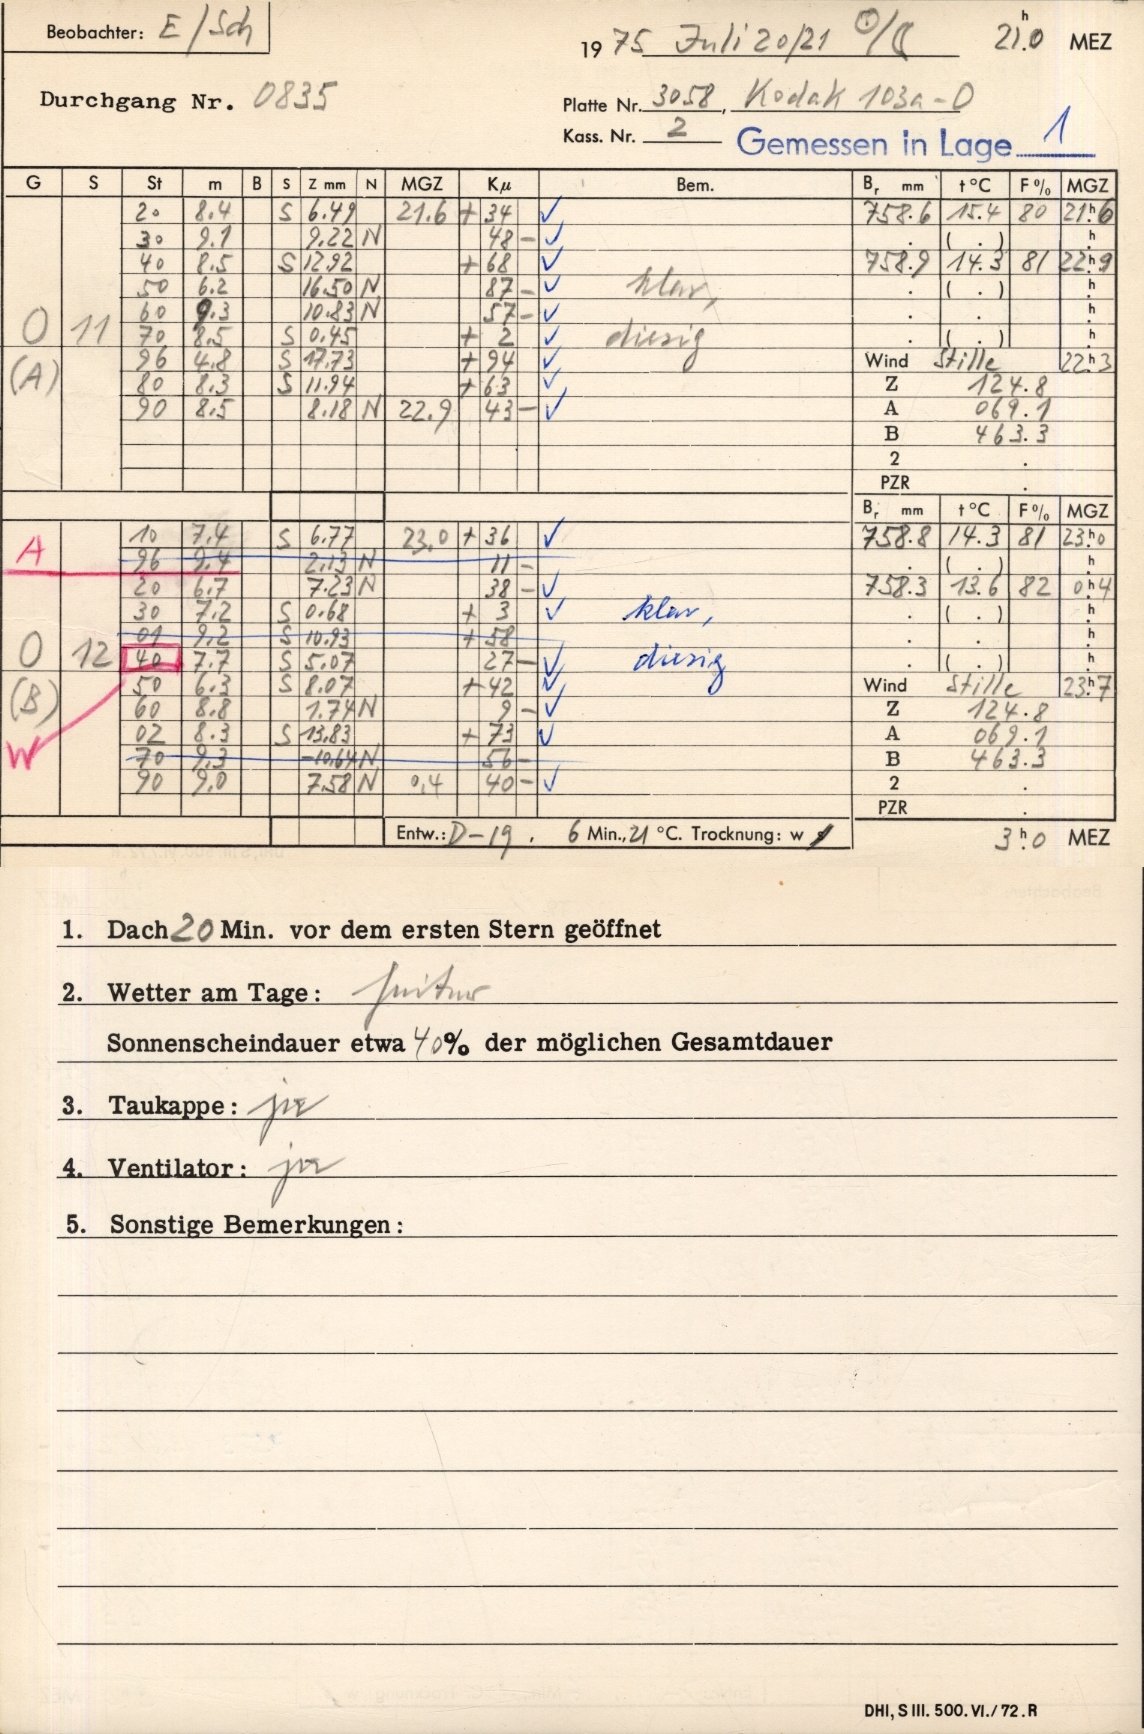 Beobachter: E/Sch
1975 Juli 20/21 ☉/☾ 21h.0 MEZ
Durchgang Nr. 0835
Platte Nr. 3058, Kodak 103a-O
Kass. Nr. 2 Gemessen in Lage 1
G S St m B S Z mm N MGZ Kμ Bem. Br mm t °C F % MGZ
20 8.4 S 6.49 21.6 + 34 ✓ 758.6 15.4 80 21h6
30 9.1 9.22 N 48 - ✓ . ( . ) h.
40 8.5 S 12.92 + 68 ✓ 758.9 14.3 81 22h9
50 6.2 16.50 N 87 - ✓ klar, . ( . ) h.
60 9.3 10.83 N 57 - ✓ . h.
O 11 70 8.5 S 0.45 + 2 ✓ diesig . ( . ) h.
96 4.8 S 17.73 + 94 ✓ Wind Stille 22h3
(A) 80 8.3 S 11.94 + 63 ✓ Z 124.8
90 8.5 8.18 N 22.9 43 - ✓ A 069.1
B 463.3
2 .
PZR .
Br mm t °C F % MGZ
A 10 7.4 S 6.77 23.0 + 36 ✓ 758.8 14.3 81 23h0
96 9.4 2.13 N 11 - . ( . ) h.
20 6.7 7.23 N 38 - ✓ 758.3 13.6 82 0h4
30 7.2 S 0.68 + 3 ✓ klar, . ( . ) h.
01 9.2 S 10.93 + 58 . h.
O 12 40 7.7 S 5.07 27 - ✓ diesig . ( . ) h.
50 6.3 S 8.07 + 42 ✓ Wind Stille 23h7
(B) 60 8.8 1.74 N 9 - ✓ Z 124.8
02 8.3 S 13.83 + 73 ✓ A 069.1
W 70 9.3 -10.64 N 56 - B 463.3
90 9.0 7.58 N 0.4 40 - ✓ 2 .
PZR .
Entw.: D-19, 6 Min., 21 °C. Trocknung: w 3h.0 MEZ
1. Dach 20 Min. vor dem ersten Stern geöffnet
2. Wetter am Tage: heiter
Sonnenscheindauer etwa 40% der möglichen Gesamtdauer
3. Taukappe: ja
4. Ventilator: ja
5. Sonstige Bemerkungen:
DHI, S III. 500. VI./72. R